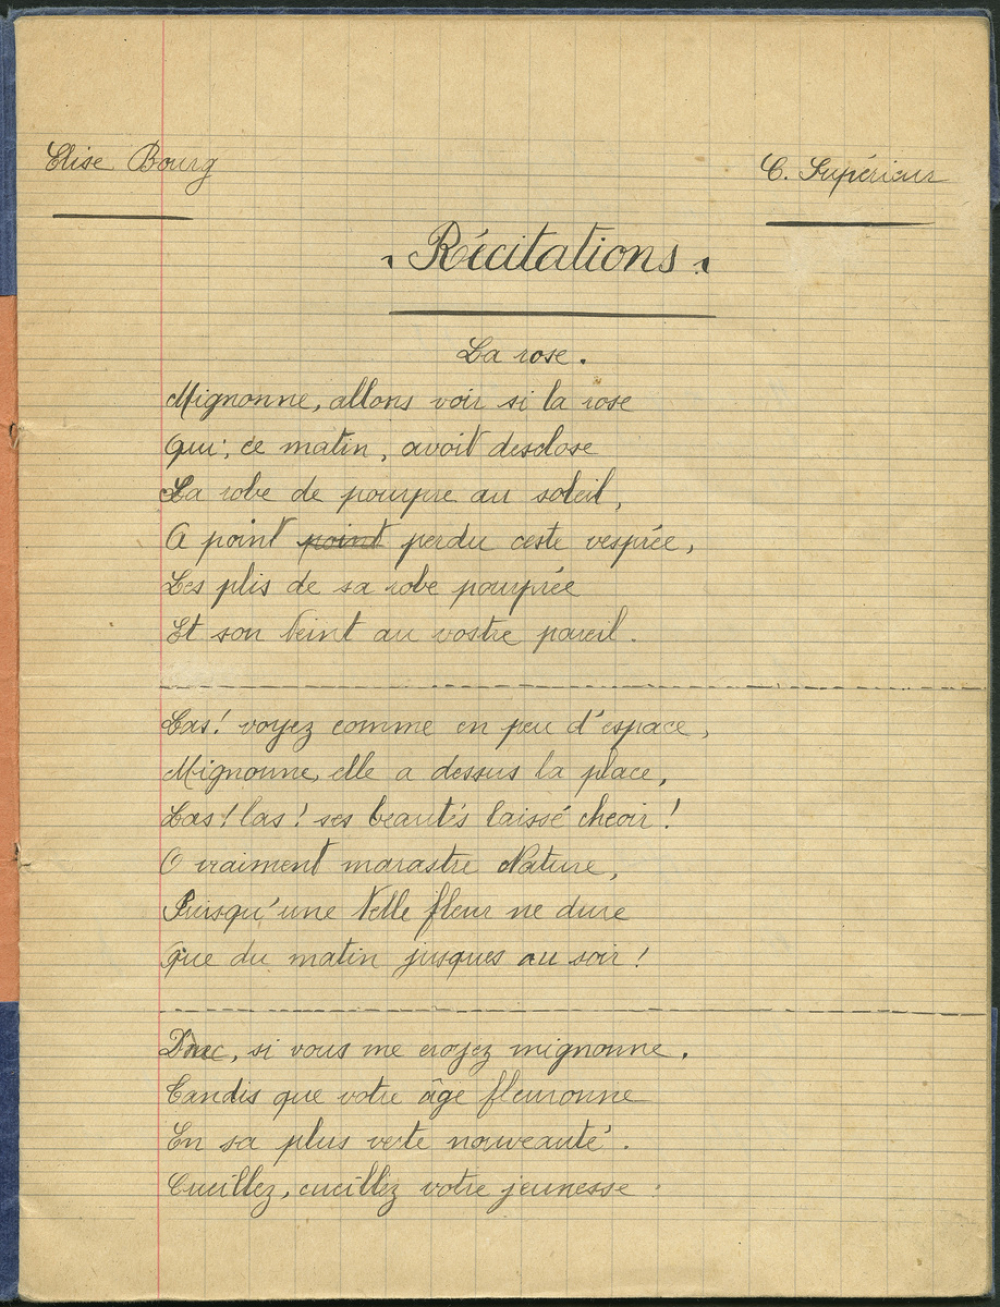 Elise Bourg
C. Supérieur
Récitations
La rose.
Mignonne, allons voir si la rose
Qui, ce matin, avoit desclose
Sa robe de pourpre au soleil,
A point ~~point~~ perdu ceste vesprée,
Les plis de sa robe pourprée
Et son teint au vostre pareil.
Las! voyez comme en peu d'espace,
Mignonne, elle a dessus la place,
Las! las! ses beautés laissé cheoir!
O vraiment marastre Nature,
Puisqu'une telle fleur ne dure
Que du matin jusques au soir!
Donc, si vous me croyez mignonne.
Tandis que votre âge fleuronne
En sa plus verte nouveauté.
Cueillez, cueillez votre jeunesse :